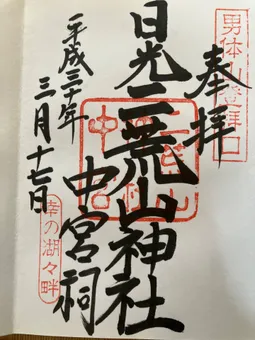 男体山登拝口
奉拝
日光二荒山神社
中宮祠
平成三十年
三月十七日
幸の湖々畔